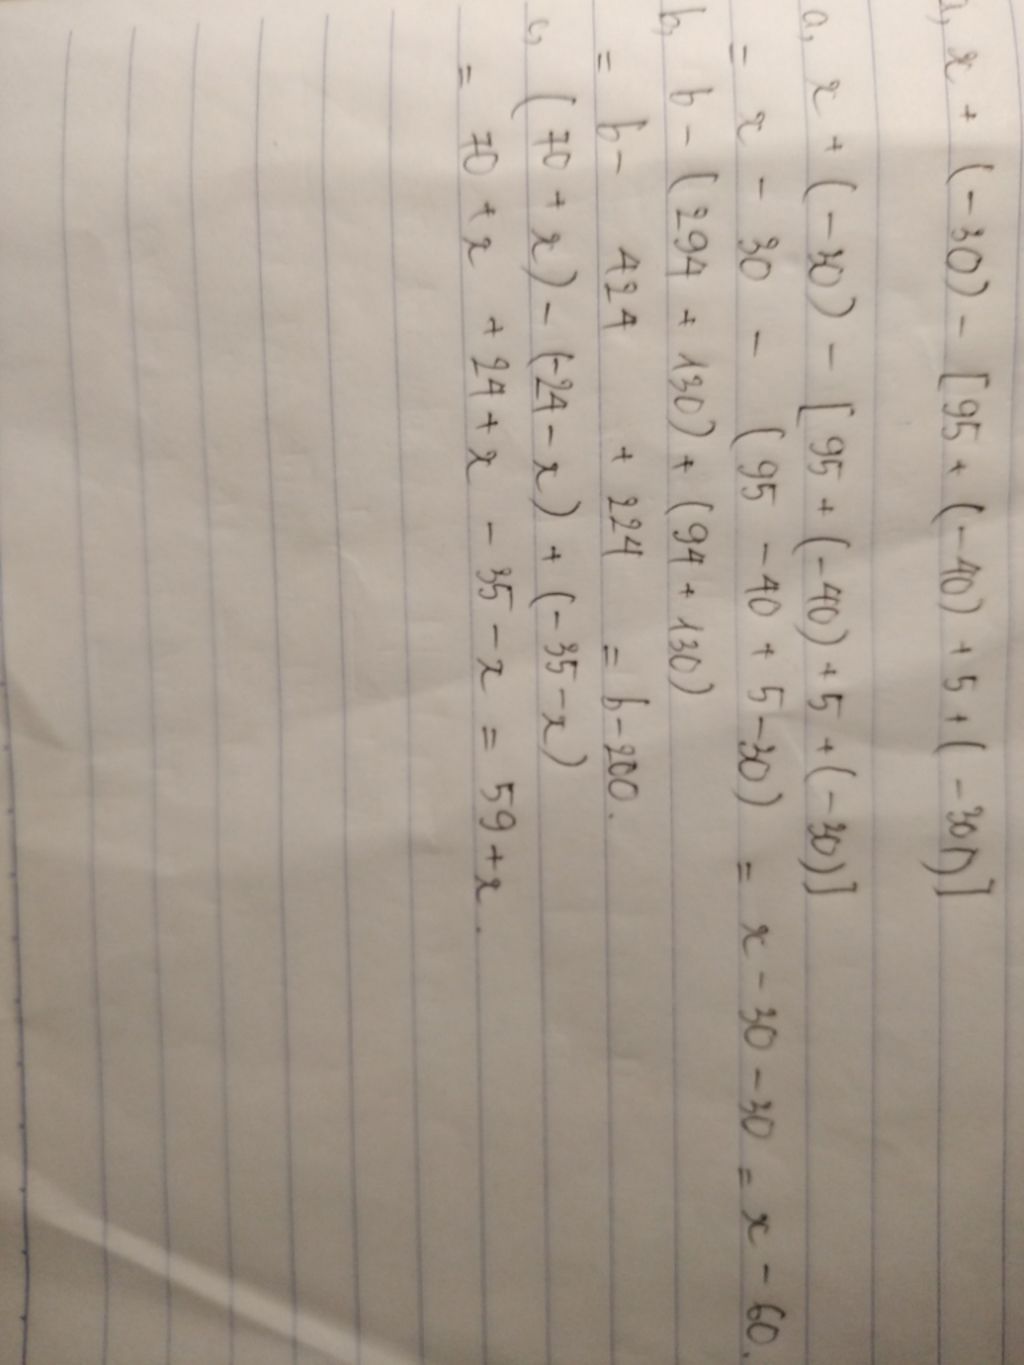 a, x + (-30) - [95 + (-40) + 5 + (-30)]
a, x + (-30) - [95 + (-40) + 5 + (-30)]
= x - 30 - (95 - 40 + 5 - 30) = x - 30 - 30 = x - 60.
b, b - (294 + 130) + (94 + 130)
= b - 424 + 224 = b - 200.
c, (70 + x) - (-24 - x) + (-35 - x)
= 70 + x + 24 + x - 35 - x = 59 + x.